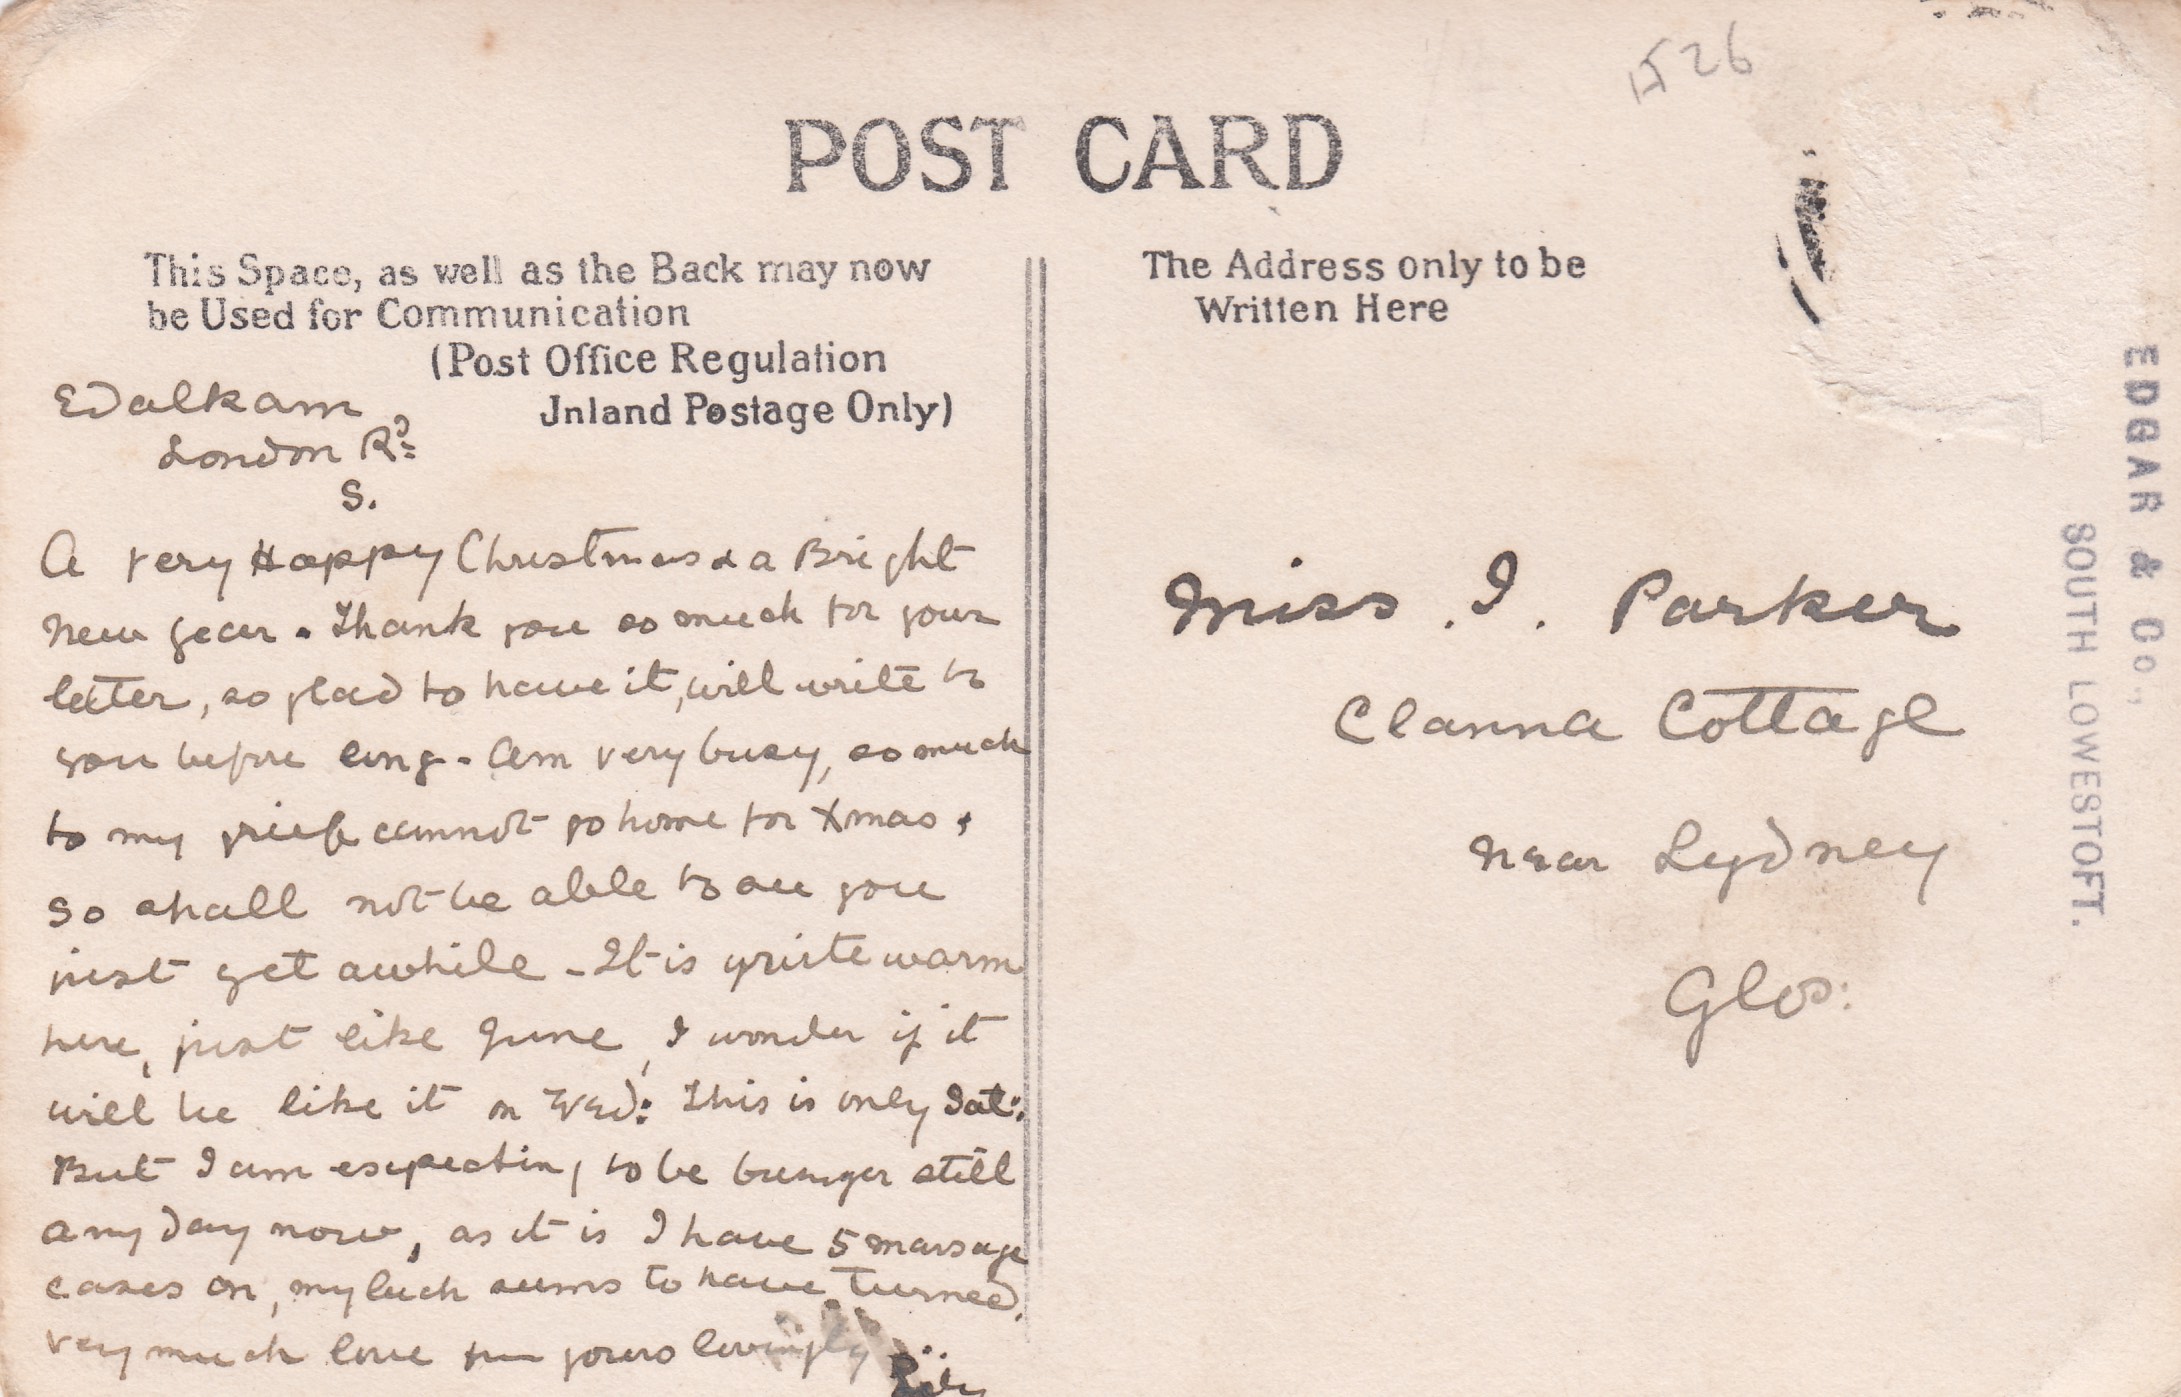 1526
POST CARD
This Space, as well as the Back may now
be Used for Communication
(Post Office Regulation
Inland Postage Only)
The Address only to be
Written Here
Edalkam
London Rd
S.
A very Happy Christmas & a Bright
New year. Thank you so much for your
letter, so glad to have it, will write to
you before long. Am very busy, so much
to my grief cannot go home for Xmas,
so shall not be able to see you
just yet awhile - It is quite warm
here, just like June, I wonder if it
will be like it on Wed: This is only Sat:
But I am expecting to be busier still
any day now, as it is I have 5 massage
cases on, my luck seems to have turned.
Very much love from yours lovingly
Lily
Miss. I. Parker
Clanna Cottage
Near Lydney
Glos:
EDGAR & Co.,
SOUTH LOWESTOFT.